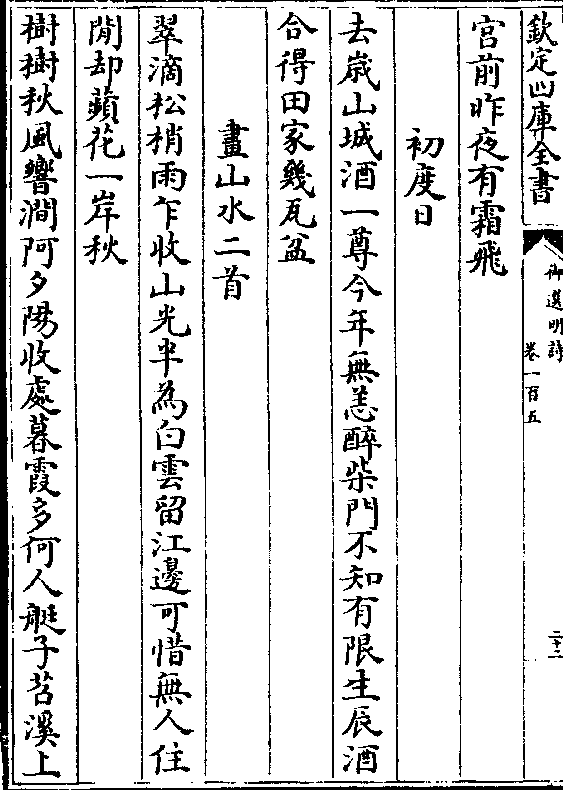 欽定四庫全書
御選明詩
卷一百五
二十二
宫前昨夜有霜飛
初度日
去嵗山城酒一尊今年無恙醉柴門不知有限生辰酒
合得田家幾瓦盆
畫山水二首
翠滴松梢雨乍收山光半為白雲留江邊可惜無人住
閒却蘋花一岸秋
樹樹秋風響澗阿夕陽收處暮霞多何人艇子苕溪上